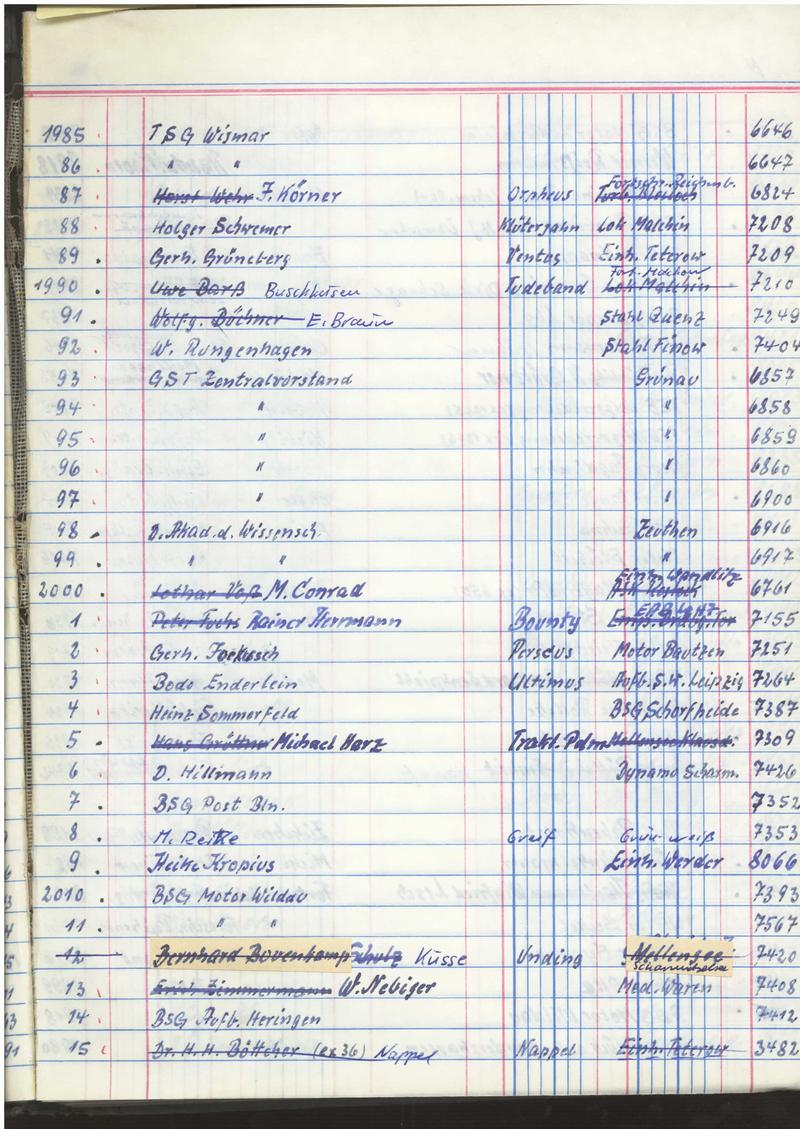 1985 TSG Wismar 6646
86 " " 6647
87 Horst Wehr F. Körner Orpheus Fortschr. Reichenb. 6824
88 Holger Schwemer Klüterjahn Lok Malchin 7208
89 Gerh. Grüneberg Ventus Einh. Teterow 7209
1990 Uwe Barß Buschhusen Tydeband Fort. Malchow Lok Malchin 7210
91 Wolfg. Büchner E. Braun Stahl Quenz 7249
92 W. Rungenhagen Stahl Finow 7404
93 GST Zentralvorstand Grünau 6857
94 " " 6858
95 " " 6859
96 " " 6860
97 " " 6900
98 D. Akad. d. Wissensch. Zeuthen 6916
99 " " " 6917
2000 Lothar Voß M. Conrad Einh. Wandlitz 6761
1 Peter Fuchs Rainer Herrmann Bounty 7155
2 Gerh. Perseus Motor Bautzen 7251
3 Bodo Enderlein Ultimus Aufb. S.W. Leipzig 7264
4 Heinz Sommerfeld BSG Schorfheide 7387
5 Hans Grüttner Michael Harz Trakt. Pdm 7309
6 D. Hillmann Dynamo Scharm. 7426
7 BSG Post Bln. 7352
8 M. Reitke Greif Grün-weiß 7353
9 Heike Kropius Einh. Werder 8066
2010 BSG Motor Wildau 7393
11 " " 7567
12 Bernhard Bovenkamp Schulz Küsse Unding Mellensee 7420
13 Erich Zimmermann W. Nebiger Med. Waren 7408
14 BSG Aufb. Heringen 7412
15 Dr. H. H. Böttcher (ex 36) Nappel Nappel Einh. Teterow 3482